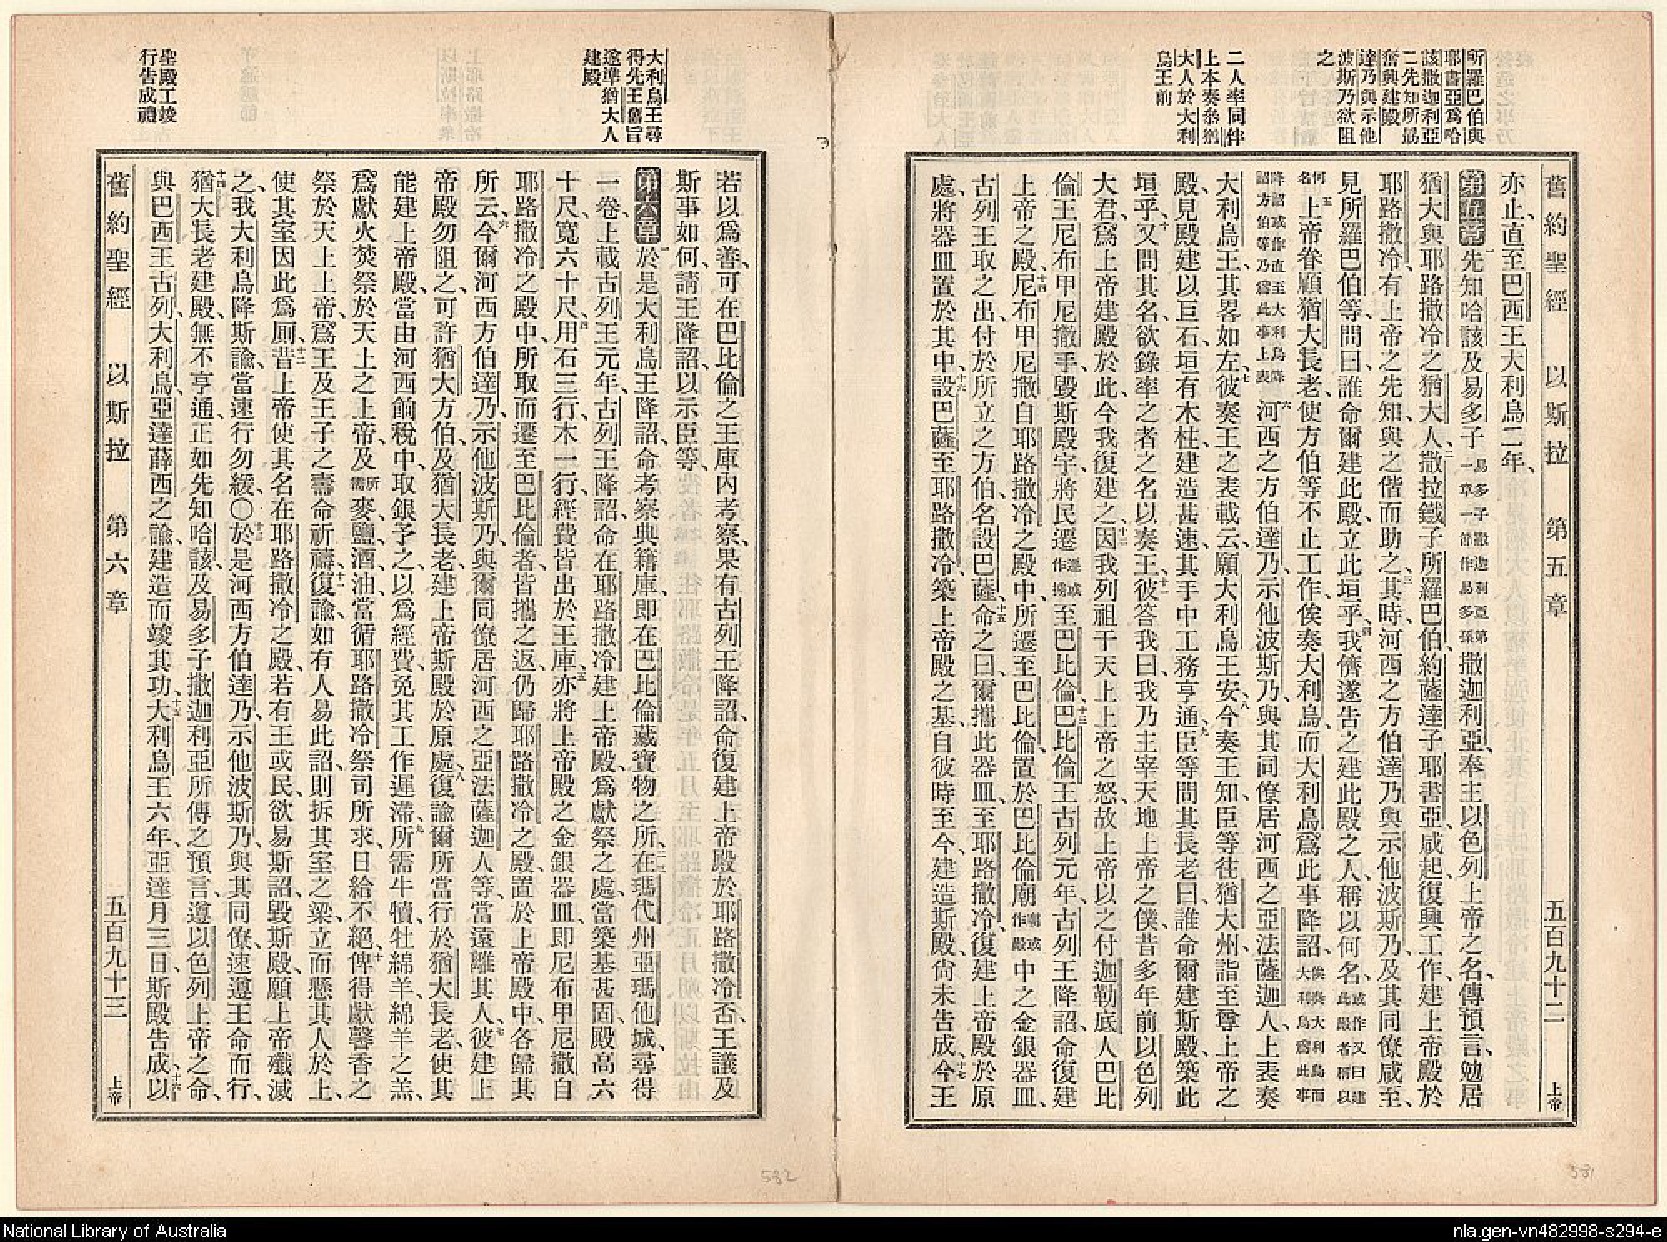 舊約聖經　以斯拉　第五章　五百九十二　上帝
所羅巴伯與
耶書亞爲哈
該撒迦利亞
二先知所勗
奮興建殿
達乃與示他
波斯乃欲阻
之
二人率同伴
上本奏參猶
大人於大利
烏王前
亦止、直至巴西王大利烏二年、
第五章 一先知哈該及易多子易多子撒迦利亞第一章一節作易多孫撒迦利亞、奉主以色列上帝之名、傳預言、勉居
猶大與耶路撒冷之猶大人、二撒拉鐵子所羅巴伯、約薩達子耶書亞、咸起、復興工作、建上帝殿於
耶路撒冷、有上帝之先知、與之偕而助之、三其時、河西之方伯達乃、與示他波斯乃、及其同僚咸至、
見所羅巴伯等、問曰、誰命爾建此殿、立此垣乎、四我儕遂告之建此殿之人、稱以何名、或作又曰建此殿者稱以
何名五上帝眷顧猶大長老、使方伯等不止工作、俟奏大利烏、而大利烏爲此事降詔、俟奏大利烏而大利烏爲此事
降詔或作直至大利烏降詔方伯等乃爲此事上表六河西之方伯達乃、示他波斯乃、與其同僚居河西之亞法薩迦人、上表奏
大利烏王、其畧如左、七彼奏王之表載云、願大利烏王安、八今奏王知、臣等往猶大州、詣至尊上帝之
殿、見殿建以巨石、垣有木柱、建造甚速、其手中工務亨通、九臣等問其長老曰、誰命爾建斯殿、築此
垣乎、十又問其名、欲錄率之者之名以奏王、十一彼答我曰、我乃主宰天地上帝之僕、昔多年前、以色列
大君、爲上帝建殿於此、今我復建之、十二因我列祖干天上上帝之怒、故上帝以之付迦勒底人巴比
倫王尼布甲尼撒手、毀斯殿宇、將民遷遷或作擄至巴比倫、十三巴比倫王古列元年、古列王降詔、命復建
上帝之殿、十四尼布甲尼撒自耶路撒冷之殿中、所遷至巴比倫、置於巴比倫廟廟或作殿中之金銀器皿、
古列王取之出、付於所立之方伯、名設巴薩、十五命之曰、爾攜此器皿、至耶路撒冷、復建上帝殿於原
處、將器皿置於其中、十六設巴薩至耶路撒冷、築上帝殿之基、自彼時至今、建造斯殿、尙未告成、十七今王
大利烏王尋
得先王舊旨
遂準猶大人
建殿
聖殿工竣
行告成禮
若以爲善、可在巴比倫之王庫內考察、果有古列王降詔、命復建上帝殿於耶路撒冷否、王議及
斯事如何、請王降詔、以示臣等、
第六章 一於是大利烏王降詔、命考察典籍庫、卽在巴比倫藏寶物之所、二在瑪代州亞瑪他城、尋得
一卷、上載古列王元年、三古列王降詔、命在耶路撒冷建上帝殿、爲獻祭之處、當築基甚固、殿高六
十尺、寬六十尺、四用石三行、木一行、經費皆出於王庫、五亦將上帝殿之金銀器皿、卽尼布甲尼撒自
耶路撒冷之殿中、所取而遷至巴比倫者、皆攜之返、仍歸耶路撒冷之殿、置於上帝殿中、各歸其
所云、六今爾河西方伯達乃、示他波斯乃、與爾同僚居河西之亞法薩迦人等、當遠離其人、七彼建上
帝殿、勿阻之、可許猶大方伯、及猶大長老、建上帝斯殿於原處、八復諭爾所當行於猶大長老、使其
能建上帝殿、當由河西餉稅中取銀予之、以爲經費、免其工作遲滯、九所需牛犢牡綿羊綿羊之羔、
爲獻火焚祭於天上之上帝、及所需麥鹽酒油、當循耶路撒冷祭司所求、日給不絕、十俾得獻馨香之
祭於天上上帝、爲王及王子之壽命祈禱、十一復諭、如有人易此詔、則拆其室之梁、立而懸其人於上、
使其室因此爲廁、十二昔上帝使其名在耶路撒冷之殿、若有王或民、欲易斯詔、毀斯殿、願上帝殲滅
之、我大利烏降斯諭、當速行勿緩、〇十三於是河西方伯達乃、示他波斯乃、與其同僚、速遵王命而行、
十四猶大長老建殿、無不亨通、正如先知哈該、及易多子撒迦利亞所傳之預言、遵以色列上帝之命、
與巴西王古列、大利烏、亞達薛西之諭、建造而竣其功、十五大利烏王六年、亞達月三日、斯殿告成、十六以
舊約聖經　以斯拉　第六章　五百九十三　上帝
532
531
National Library of Australia
nla.gen-vn482998-s294-e